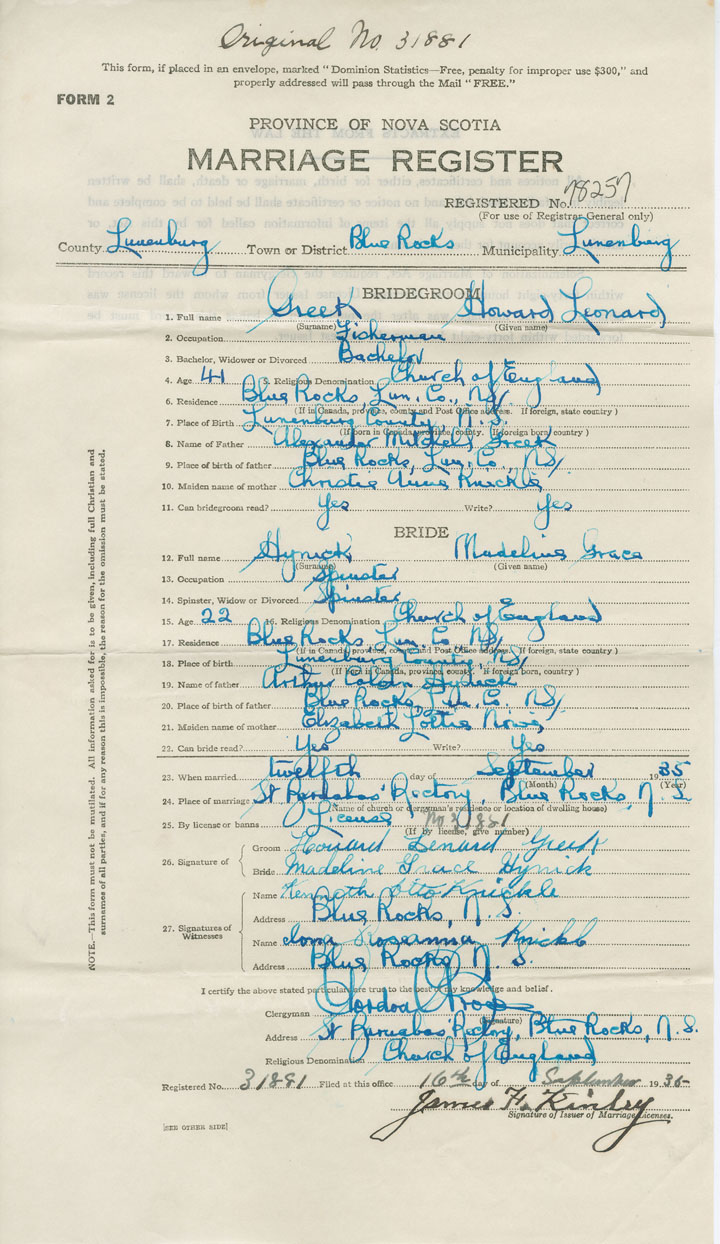 Original No. 31881
This form, if placed in an envelope, marked "Dominion Statistics—Free, penalty for improper use $300," and
properly addressed will pass through the Mail "FREE."
FORM 2
PROVINCE OF NOVA SCOTIA
MARRIAGE REGISTER
REGISTERED No. 78257
(For use of Registrar General only)
County Lunenburg Town or District Blue Rocks Municipality Lunenburg
BRIDEGROOM
1. Full name Greek Howard Leonard
(Surname) (Given name)
2. Occupation Fisherman
3. Bachelor, Widower or Divorced Bachelor
4. Age 41 5. Religious Denomination Church of England
6. Residence Blue Rocks, Lun. Co., NS/
(If in Canada, province, county and Post Office address. If foreign, state country)
7. Place of Birth Lunenburg County, N.S.
(If born in Canada, province, county. If foreign born, country)
8. Name of Father Alexander Mitchell Greek
9. Place of birth of father Blue Rocks, Lun. Co., NS/
10. Maiden name of mother Christie Anne Knickle
11. Can bridegroom read? Yes Write? Yes
BRIDE
12. Full name Hynick Madeline Grace
(Surname) (Given name)
13. Occupation Spinster
14. Spinster, Widow or Divorced Spinster
15. Age 22 16. Religious Denomination Church of England
17. Residence Blue Rocks, Lun. Co. NS/
(If in Canada, province, county and Post Office address. If foreign, state country)
18. Place of birth Lunenburg County, NS/
(If born in Canada, province, county. If foreign born, country)
19. Name of father Arthur Hynick
20. Place of birth of father Blue Rocks, Lun. Co., NS/
21. Maiden name of mother Elizabeth Lottie
22. Can bride read? Yes Write? Yes
23. When married twelfth day of September 1935
(Month) (Year)
24. Place of marriage St Barnabas' Rectory, Blue Rocks, N.S.
(Name of church or clergyman's residence or location of dwelling house)
25. By license or banns License No 31881
(If by license, give number)
26. Signature of
Groom Howard Lenard Greek
Bride Madeline Grace Hynick
27. Signatures of Witnesses
Name Kenneth Otto Knickle
Address Blue Rocks, N.S.
Name Roseanna Knickle
Address Blue Rocks N.S.
I certify the above stated particulars are true to the best of my knowledge and belief.
Clergyman
(Signature)
Address St Barnabas' Rectory, Blue Rocks, N.S.
Religious Denomination Church of England
Registered No. 31881 Filed at this office 16th day of September 1935
James F. Kinley
Signature of Issuer of Marriage Licenses.
[SEE OTHER SIDE]
NOTE.—This form must not be mutilated. All information asked for is to be given, including full Christian and
surnames of all parties, and if for any reason this is impossible, the reason for the omission must be stated.